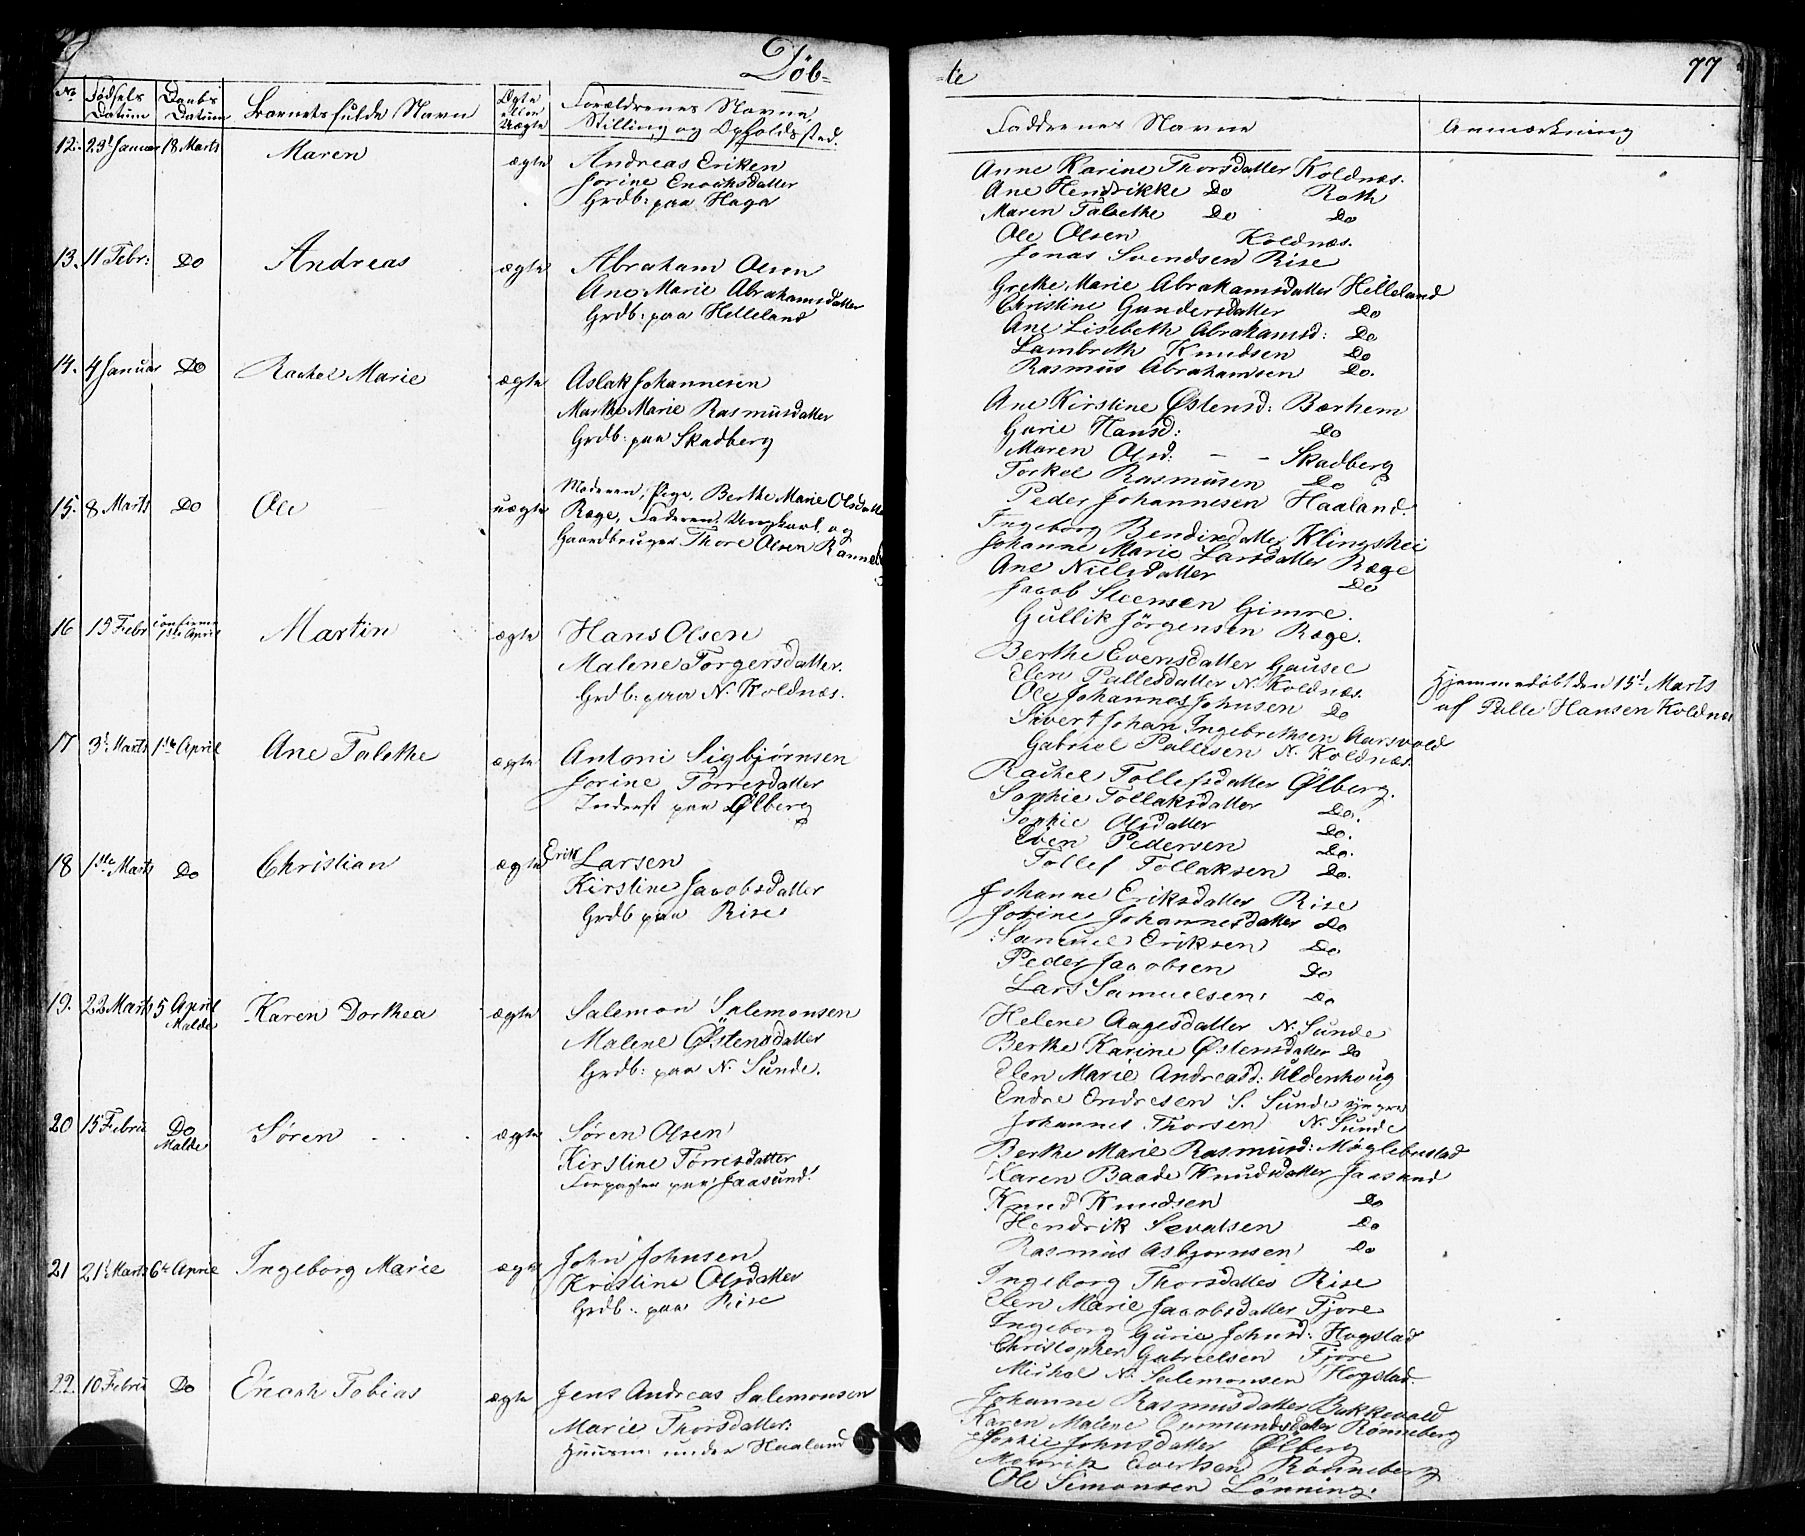 Døb-
No. Fødsels Datum Daabs Datum Barnets fulde Navn Ægte eller Uægte Forældrenes Navne, Stilling og Opholdssted.
12. 23d Januar 18 Marts Maren ægte Andreas Eriksen
Jorine Enochsdatter
Grdb: paa Haga
13. 11 Febr: Do Andreas ægte Abraham Olsen
Ane Marie Abrahamsdatter
Grdb: paa Helleland
14. 4 Januar Do Rachel Marie ægte Aslak Johannesen
Marthe Marie Rasmusdatter
Grdb: paa Skadberg
15. 8 Marts Do Ole uægte Moderen, Pige, Berthe Marie Olsdatter
Ræge, Faderen Ungkarl og
Gaardbruger Thore Olsen
16 15 Febr confirm. 1ste April Martin ægte Hans Olsen
Malene Torgersdatter.
Grdb: paa N. Koldnæs.
17 3d Marts 1ste April Ane Talethe ægte Antoni Sigbjørnsen
Jorine Tørresdatter
Inderst paa Ølberg
18 1ste Marts Do Christian ægte Erik Larsen
Kirstine Jacobsdatter
Grdb paa Rise
19. 22 Marts 5 April Malde Karen Dorthea ægte Salemon Salemonsen
Malene Østensdatter
Grdb: paa N. Sunde.
20 15 Febru Do Malde Søren ægte Søren Olsen
Kirstine Tørresdatter
Forpagter paa Jaasund
21 21d Marts 6te April Ingeborg Marie ægte John Johnsen
Kristine Olsdatter
Grdb: paa Rise
22. 10 Febru Do Enoch Tobias ægte Jens Andreas Salemonsen
Marie Thorsdatter:
Huusm: under Haaland
-te 77
Faddernes Navne Anmærkning
Anne Karine Thorsdatter Koldnæs.
Ane Hendrikke Do Roth
Maren Talethe Do Do
Ole Olsen Koldnæs.
Jonas Svendsen Rise
Grethe Marie Abrahamsdatter Helleland
Christine Gundersdatter Do
Ane Lisebeth Abrahamsd: Do
Lambreth Knudsen Do
Rasmus Abrahamsen Do.
Ane Kirstine Østensd: Bærhem
Gurie Hansd: Do
Maren Olsd: - - Skadberg
Torkel Rasmusen Do
Peder Johannesen Haaland.
Ingeborg Bendixdatter Klingshei
Johanne Marie Larsdatter Ræge
Ane Nielsdatter Do
Jacob Steensen Gimre.
Gullik Jörgensen Ræge.
Berthe Evensdatter Gausel
Elen Pallesdatter N. Koldnæs.
Ole Johannes Johnsen Do
Sivert Johan Ingebrethsen Aarsvold
Gabriel Pallesen N. Koldnæs.
Hjemmedøbt den 15d Marts
af Palle Hansen Koldnæs
Rachel Tollefsdatter Ølberg.
Sophie Tollaksdatter Do.
Sophie Olsdatter Do.
Even Pedersen Do.
Tollef Tollaksen Do.
Johanne Eriksdatter Rise
Jorine Johannesdatter Do
Samuel Eriksen Do
Peder Jacobsen Do
Lars Samuelsen Do
Helene Aagesdatter N. Sunde
Berthe Karine Østensdatter Do
Elen Marie Andreasd: Uldenhoug
Endre Endresen S. Sunde yngre
Johannes Thorsen N. Sunde
Berthe Marie Rasmusd: Møglebustad
Karen Baade Knudsdatter Jaasund
Knud Knudsen Do
Hendrik Sevatsen Do
Rasmus Asbjornsen Do
Ingeborg Thorsdatter Rise
Elen Marie Jacobsdatter Fjore
Ingeborg Gurie Johnsd: Hogstad
Christopher Gabrielsen Fjore
Michal N. Salemonsen Hogstad.
Johanne Rasmusdatter Bakkevold
Karen Malene Ommundsdatter Rønneberg
Sophie Johnsdatter Ølberg
Evertsen Rønneberg
Ole Simonsen Lønning.